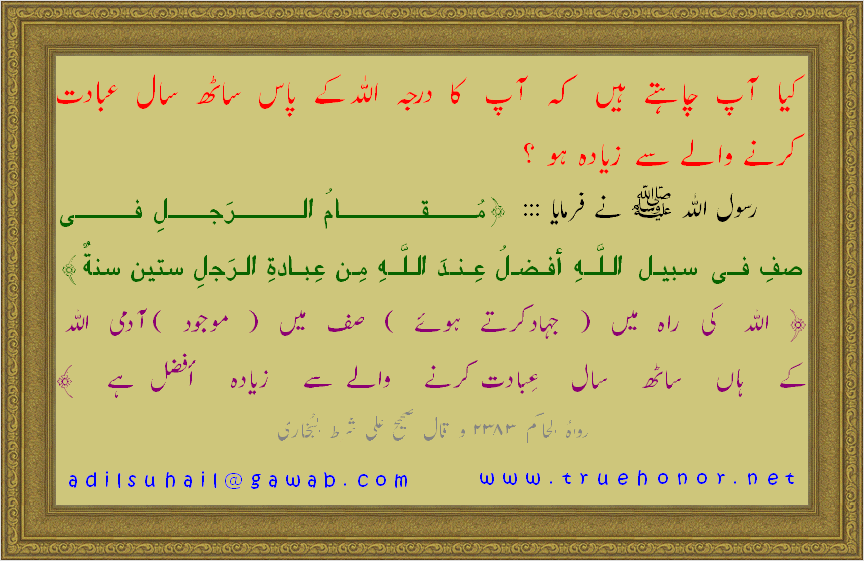 کیا آپ چاہتے ہیں کہ آپ کا درجہ اللہ کے پاس ساٹھ سال عبادت
کرنے والے سے زیادہ ہو ؟
رسول اللہ ﷺ نے فرمایا ::: ﴿مُـقـامُ الـرَجـلِ فـی
صفِ فی سبیل اللَّہِ أفضلُ عِندَ اللَّہِ مِن عِبادۃِ الرَجلِ ستین سنۃٌ﴾
﴿ اللہ کی راہ میں ( جہاد کرتے ہوئے ) صف میں ( موجود ) آدمی اللہ
کے ہاں ساٹھ سال عِبادت کرنے والے سے زیادہ أفضل ہے ﴾
رواہُ الحاکم ٢٣٨٣ و قال صحیح علی شرط البُخاری
adilsuhail@gawab.com www.truehonor.net